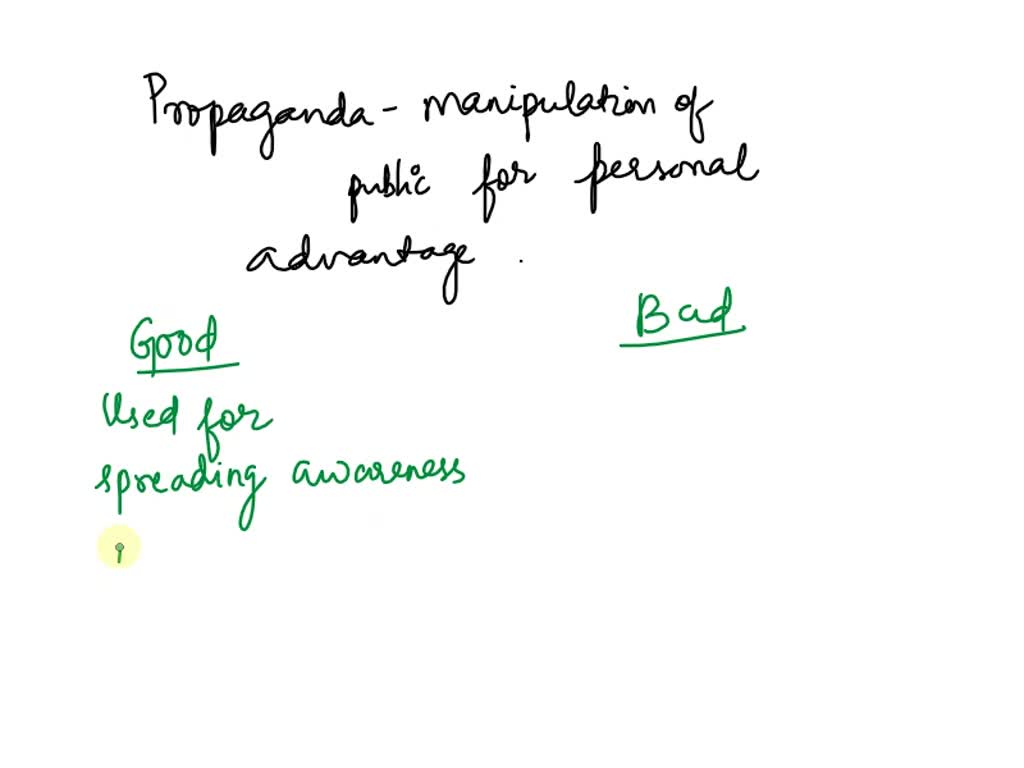 Propaganda - manipulation of
public for personal
advantage .
Good
Bad
Used for
spreading awareness